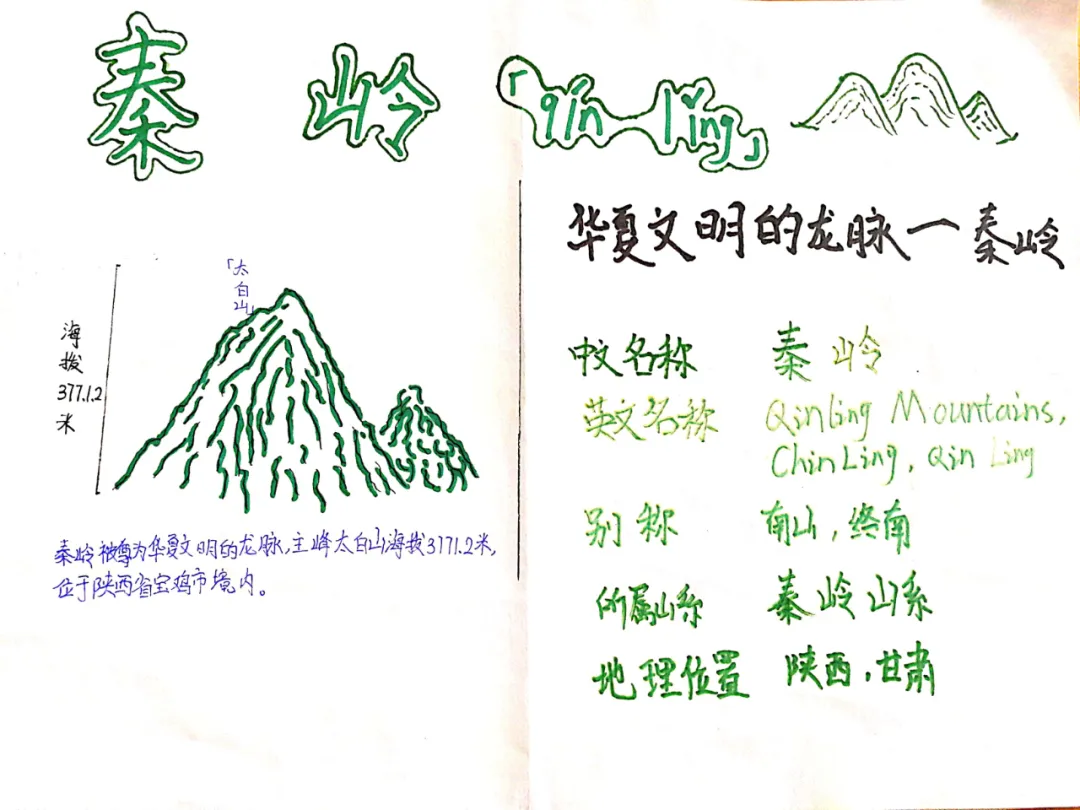 秦 岭 「qín—lǐng」
「太白山」
海拔3771.2米
秦岭被尊为华夏文明的龙脉,主峰太白山海拔3771.2米,
位于陕西省宝鸡市境内。
华夏文明的龙脉—秦岭
中文名称 秦岭
英文名称 Qinling Mountains,
ChinLing, Qin Ling
别称 南山,终南
所属山系 秦岭山系
地理位置 陕西,甘肃